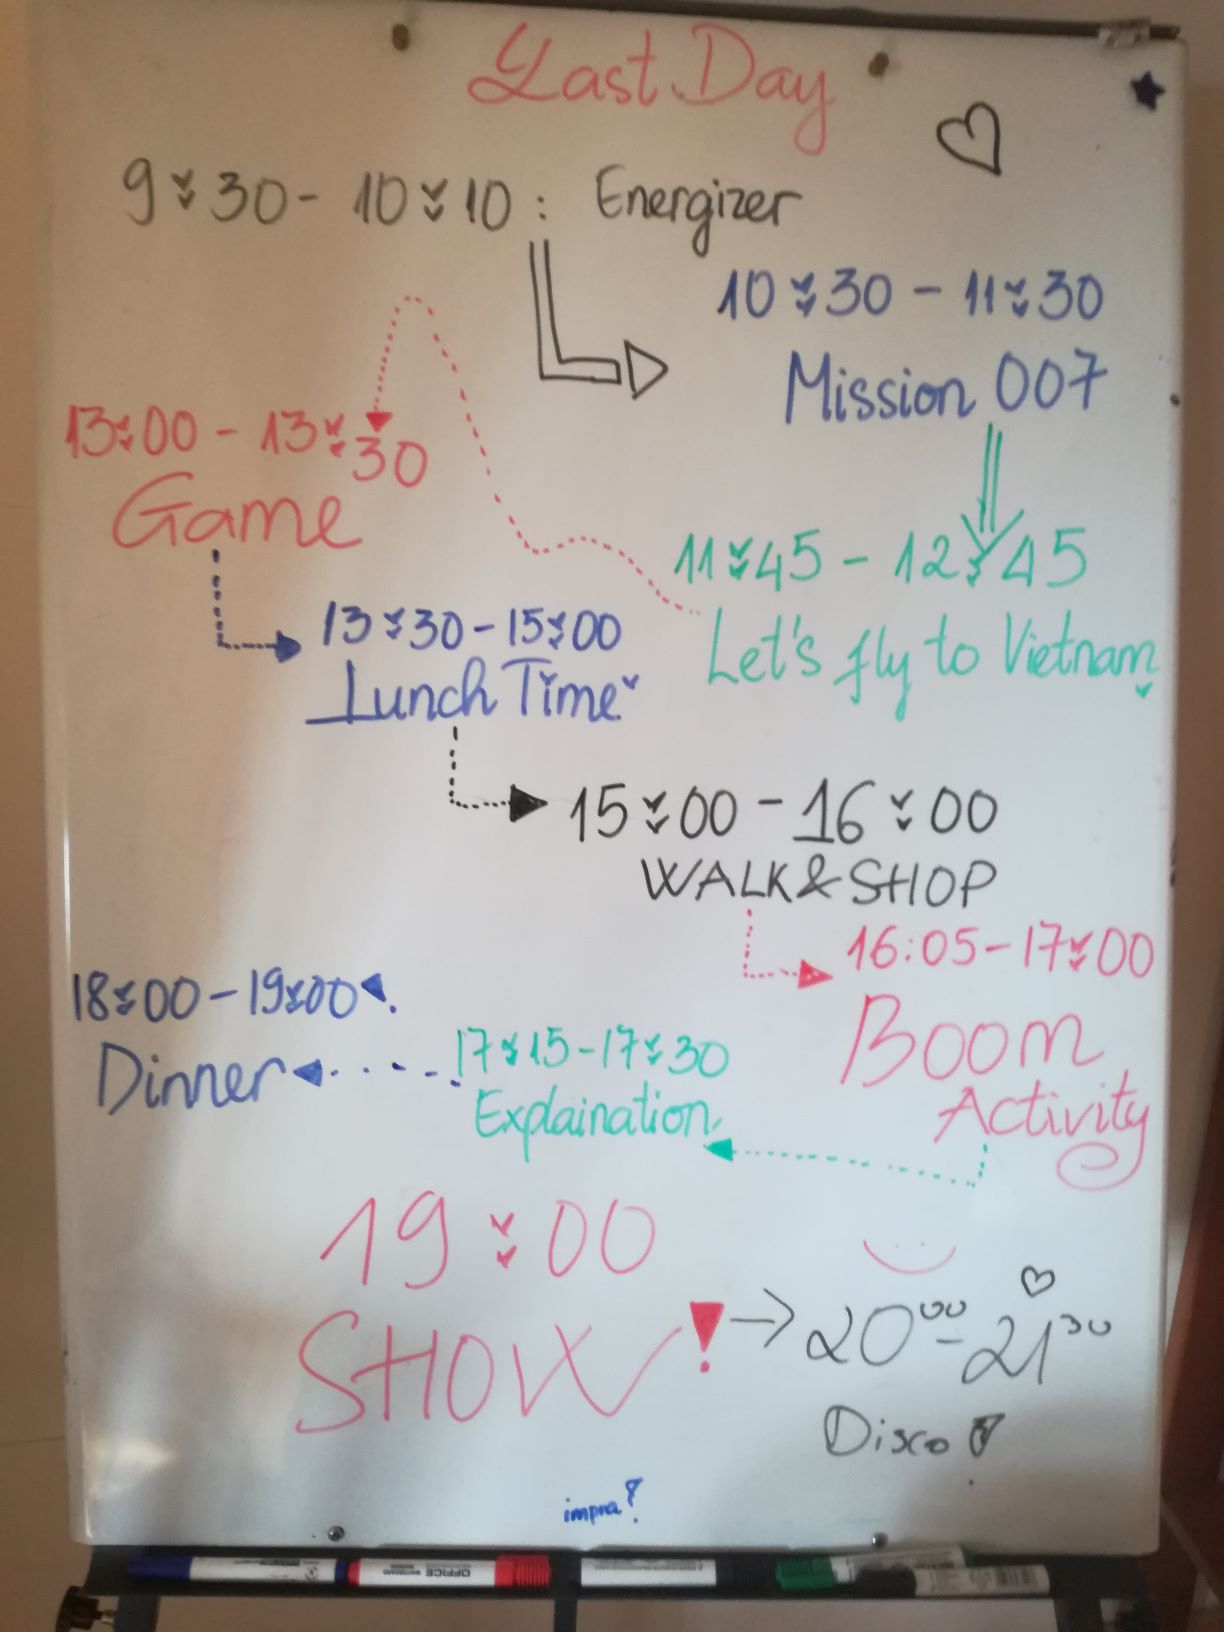 Last Day
9:30 - 10:10 : Energizer
10:30 - 11:30
Mission 007
11:45 - 12:45
Let's fly to Vietnam
13:00 - 13:30
Game
13:30 - 15:00
Lunch Time
15:00 - 16:00
WALK & SHOP
16:05 - 17:00
Boom
Activity
17:15 - 17:30
Explaination
18:00 - 19:00
Dinner
19:00
SHOW!
20⁰⁰ - 21³⁰
Disco!
impra!
OFFICE